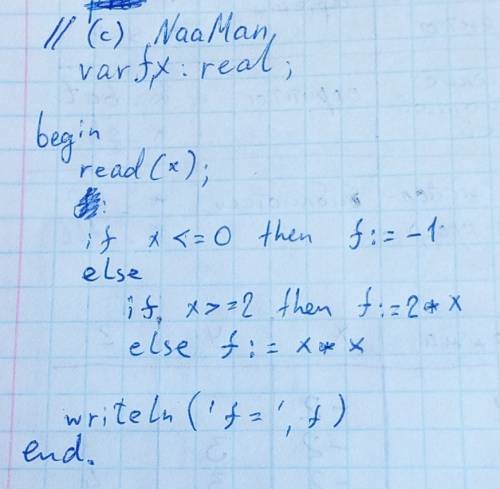 // (c) NaaMan
var f,x : real;
begin
read(x);
if x <= 0 then f := -1
else
if x >= 2 then f := 2 * x
else f := x * x
writeln ('f=', f)
end.